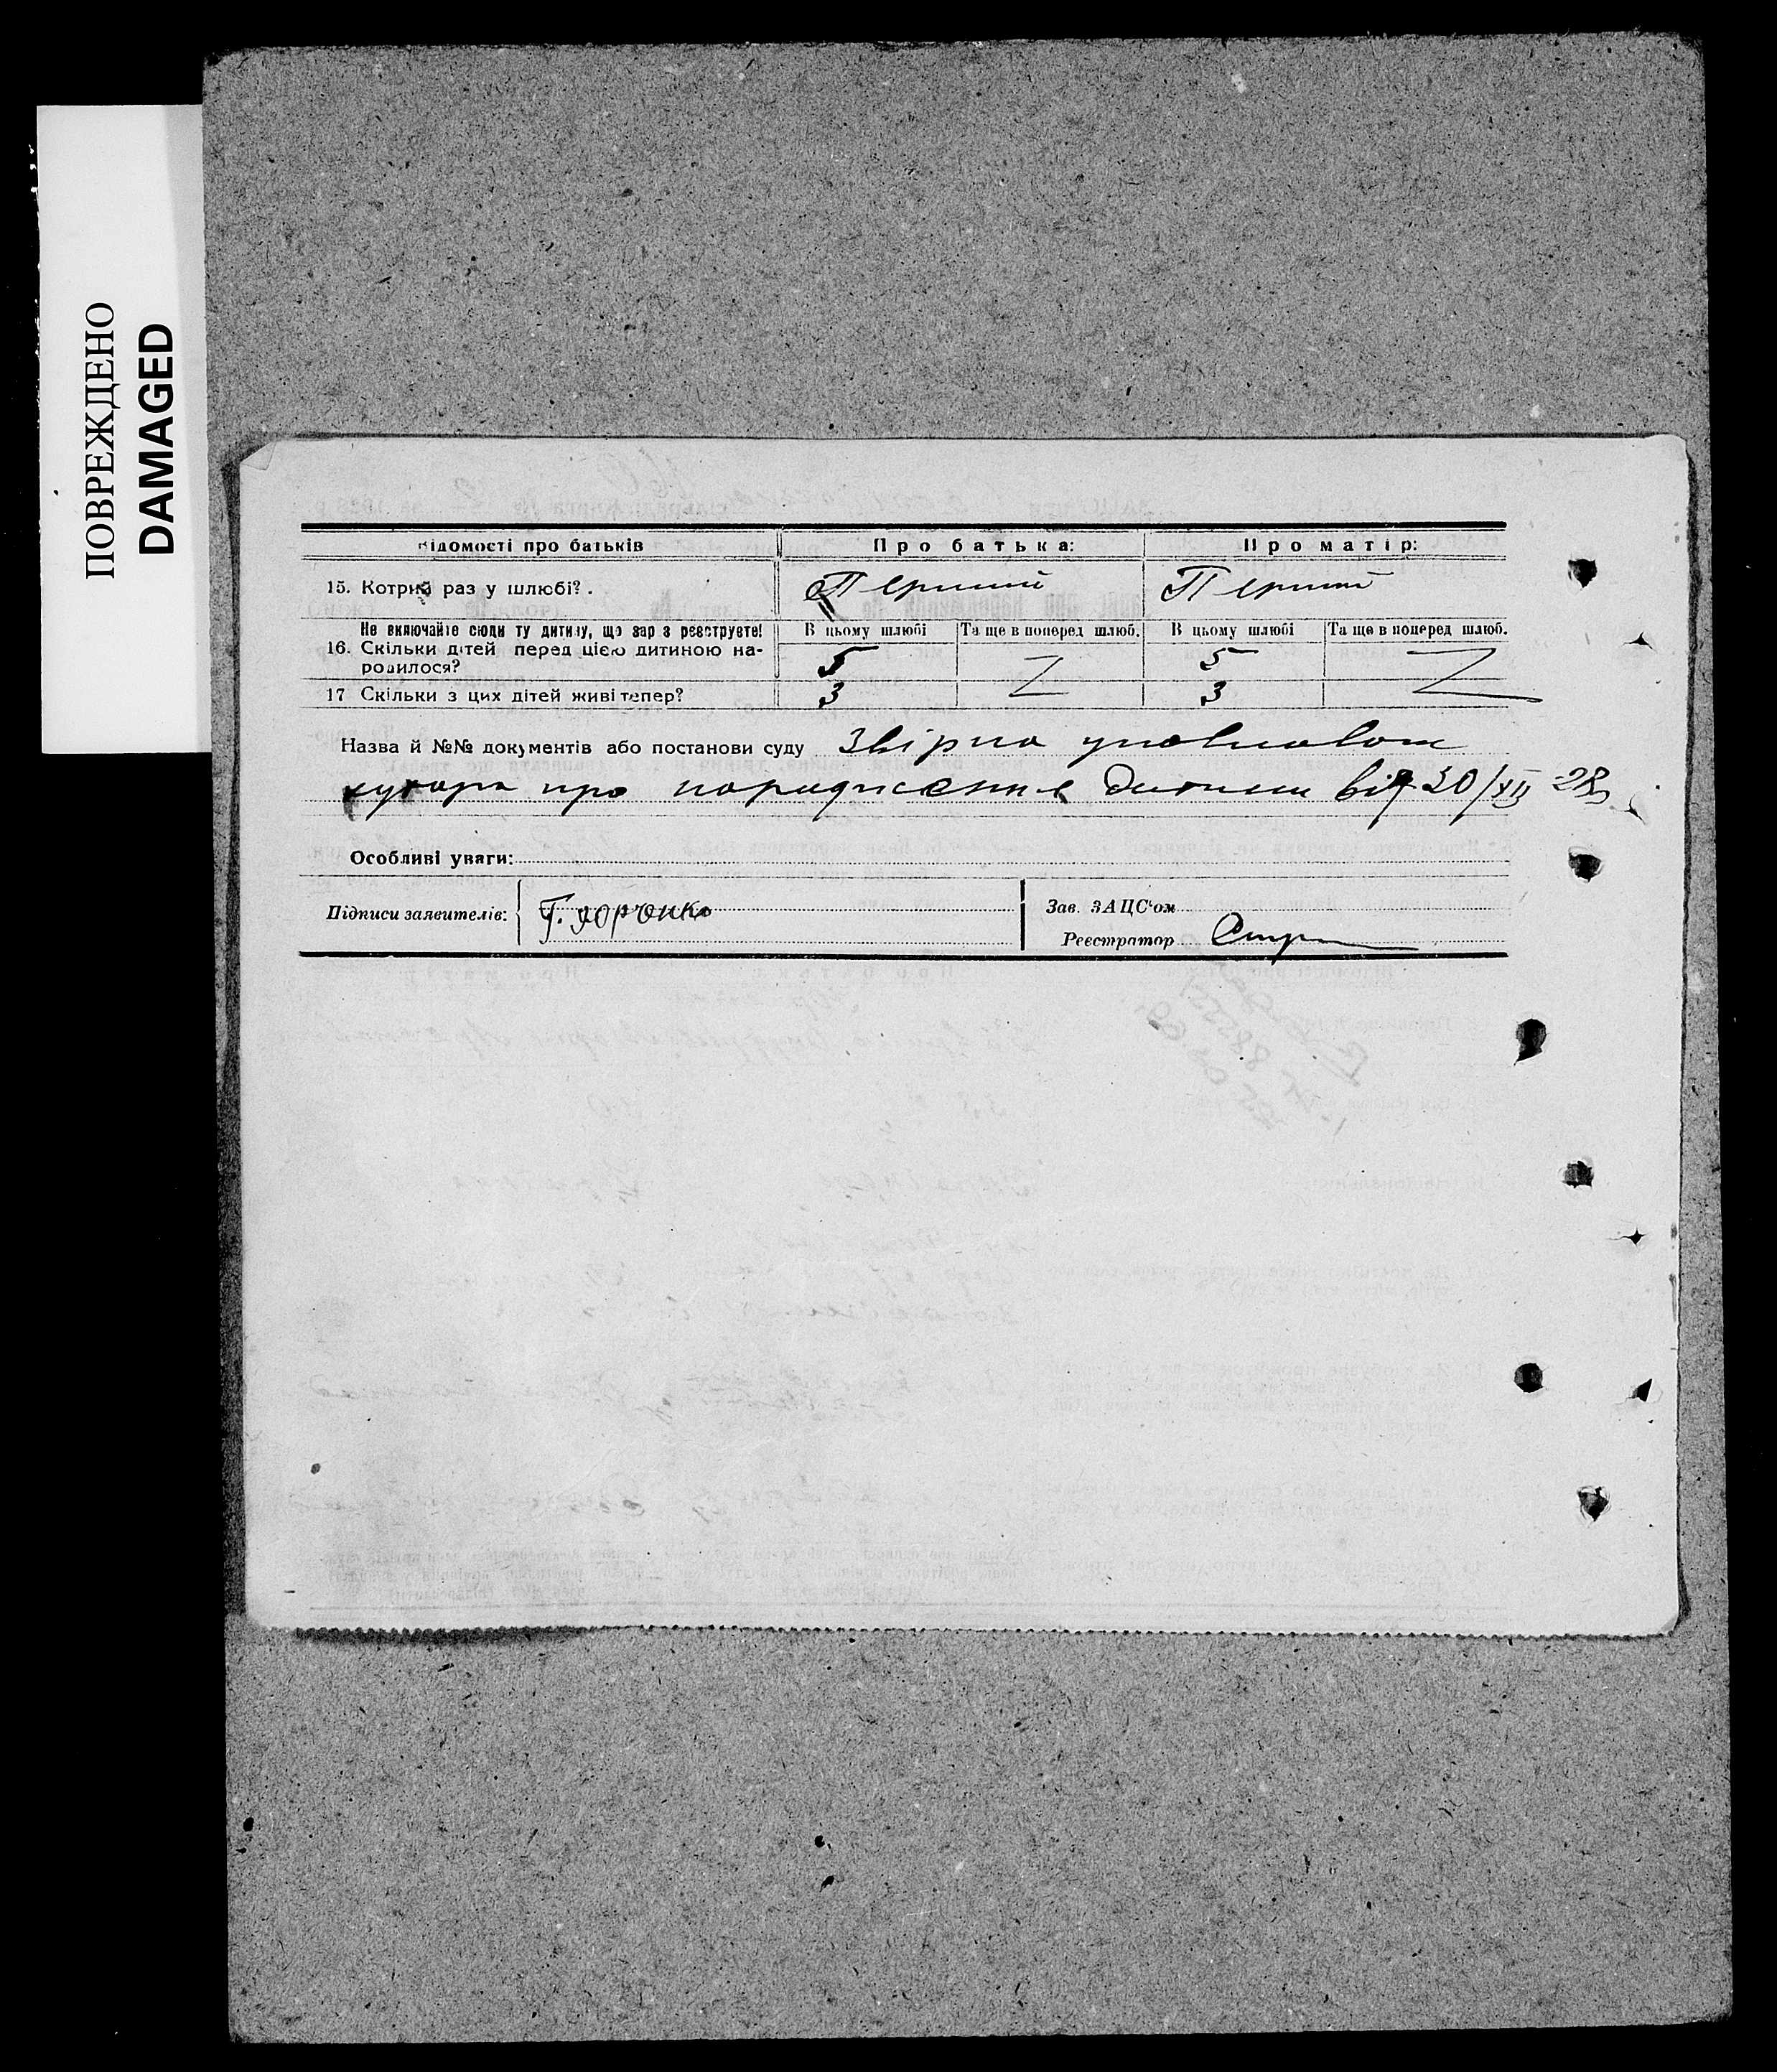 ПОВРЕЖДЕНО
DAMAGED
Відомості про батьків
Про батька:
Про матір:
15. Котрий раз у шлюбі?
Перший
Перший
Не включайте сюди ту дитину, що зараз реєструєте!
16. Скільки дітей перед цією дитиною на-
родилося?
В цьому шлюбі
Та ще в поперед шлюб.
В цьому шлюбі
Та ще в поперед шлюб.
5
5
17 Скільки з цих дітей живі тепер?
3
3
Назва й №№ документів або постанови суду
хутора про народження дитини від 30/XII 28
Особливі уваги:
Підписи заявителів:
Зав. ЗАЦС'ом
Реєстратор